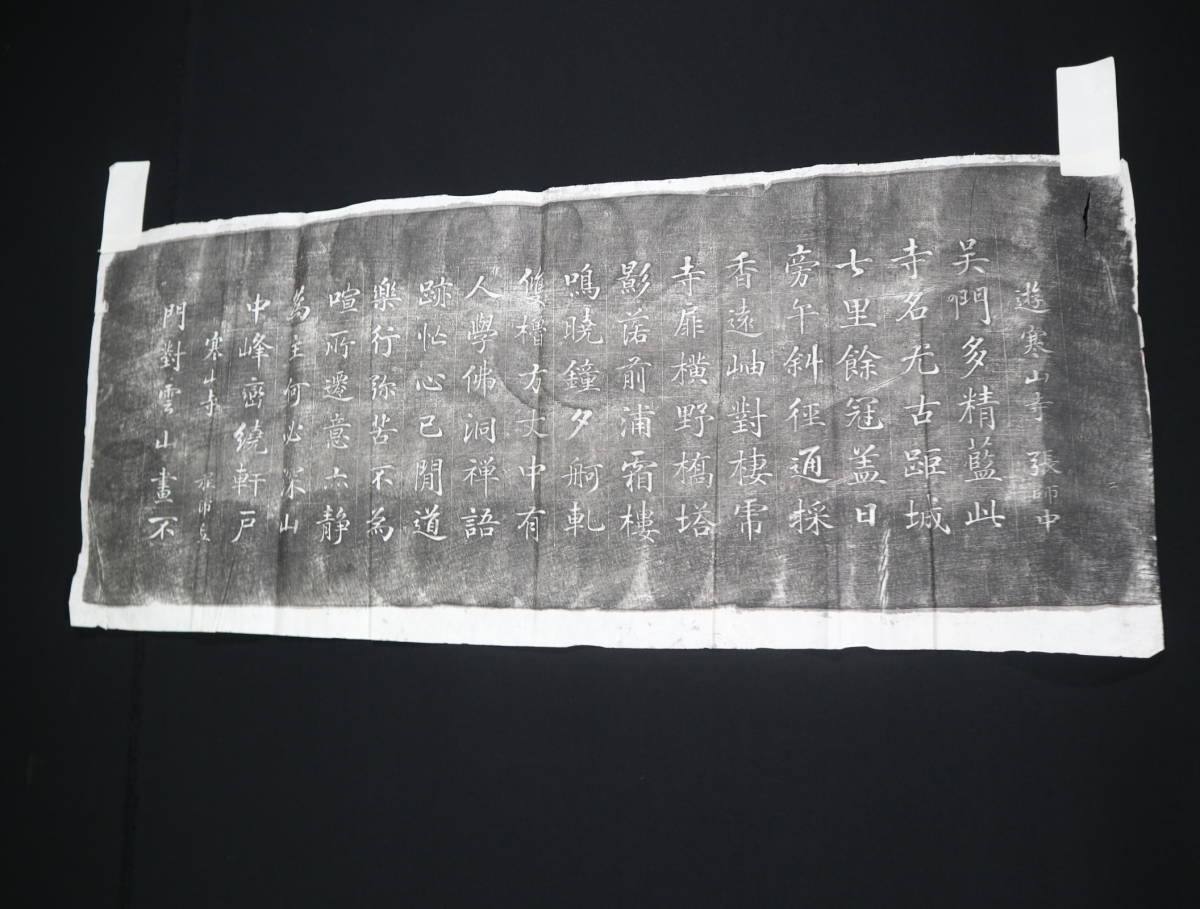 遊寒山寺 張師中
吳門多精藍此
寺名尤古距城
七里餘冠盖日
旁午斜徑通採
香遠岫對棲乕
寺扉橫野橋塔
影落前浦霜樓
鳴曉鐘夕舸軋
雙櫓方丈中有
人學佛洞禅語
跡忙心已閒道
樂行弥苦不為
喧所遷意亦静
為主何必深山
中峰巒繞軒戶
寒山寺 程師孟
門對雲山畫不